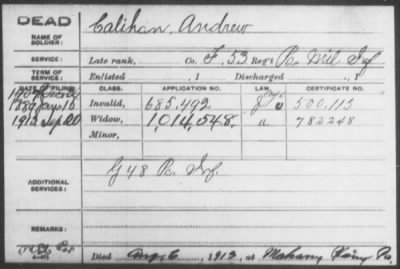 DEAD
NAME OF SOLDIER:
Calihan, Andrew
SERVICE:
Late rank, Co. F, 53 Reg't Pa. Mil Inf
TERM OF SERVICE:
Enlisted , 1 Discharged , 1
DATE OF FILING: CLASS. APPLICATION NO. LAW. CERTIFICATE NO.
Invalid, 685.492 500.115
Widow, 1,014,548. 782248
Minor,
ADDITIONAL SERVICES:
G 48 Pa. Inf.
REMARKS:
Died Aug. 6, 1912, at Mahanoy Pa.